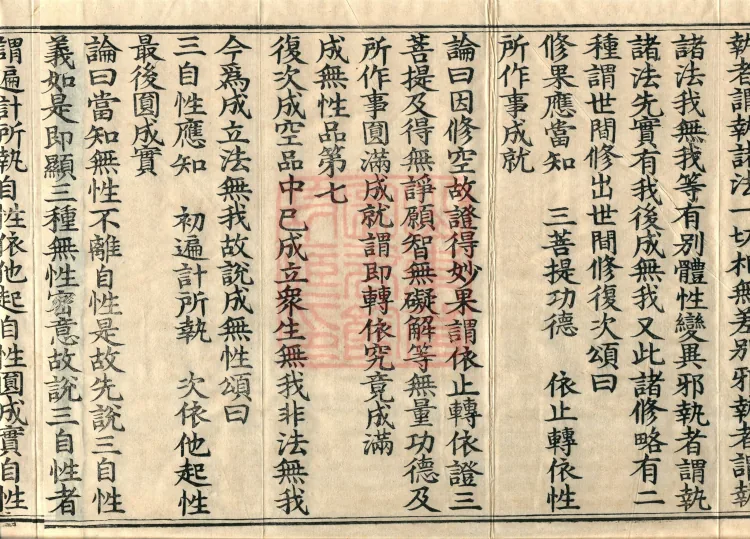 執者謂執諸法一切相無差別邪執者謂執
諸法我無我等有別體性變異邪執者謂執
諸法先實有我後成無我又此諸修略有二
種謂世間修出世間修復次頌曰
修果應當知　三菩提功德　依止轉依性
所作事成就
論曰因修空故證得妙果謂依止轉依證三
菩提及得無諍願智無礙解等無量功德及
所作事圓滿成就謂即轉依究竟成滿
成無性品第七
復次成空品中已成立衆生無我非法無我
今爲成立法無我故說成無性頌曰
三自性應知　初遍計所執　次依他起性
最後圓成實
論曰當知無性不離自性是故先說三自性
義如是即顯三種無性密意故說三自性者
謂遍計所執自性依他起自性圓成實自性